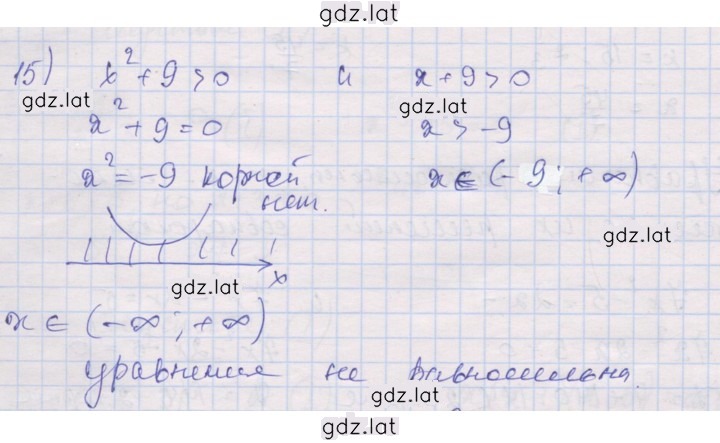 gdz.lat
15) x² + 9 > 0 и x + 9 > 0
gdz.lat gdz.lat
x² + 9 = 0 x > -9
x² = -9 корней нет. x ∈ (-9; +∞)
gdz.lat
gdz.lat
x
x ∈ (-∞; +∞)
уравнения не равносильна.
gdz.lat
gdz.lat